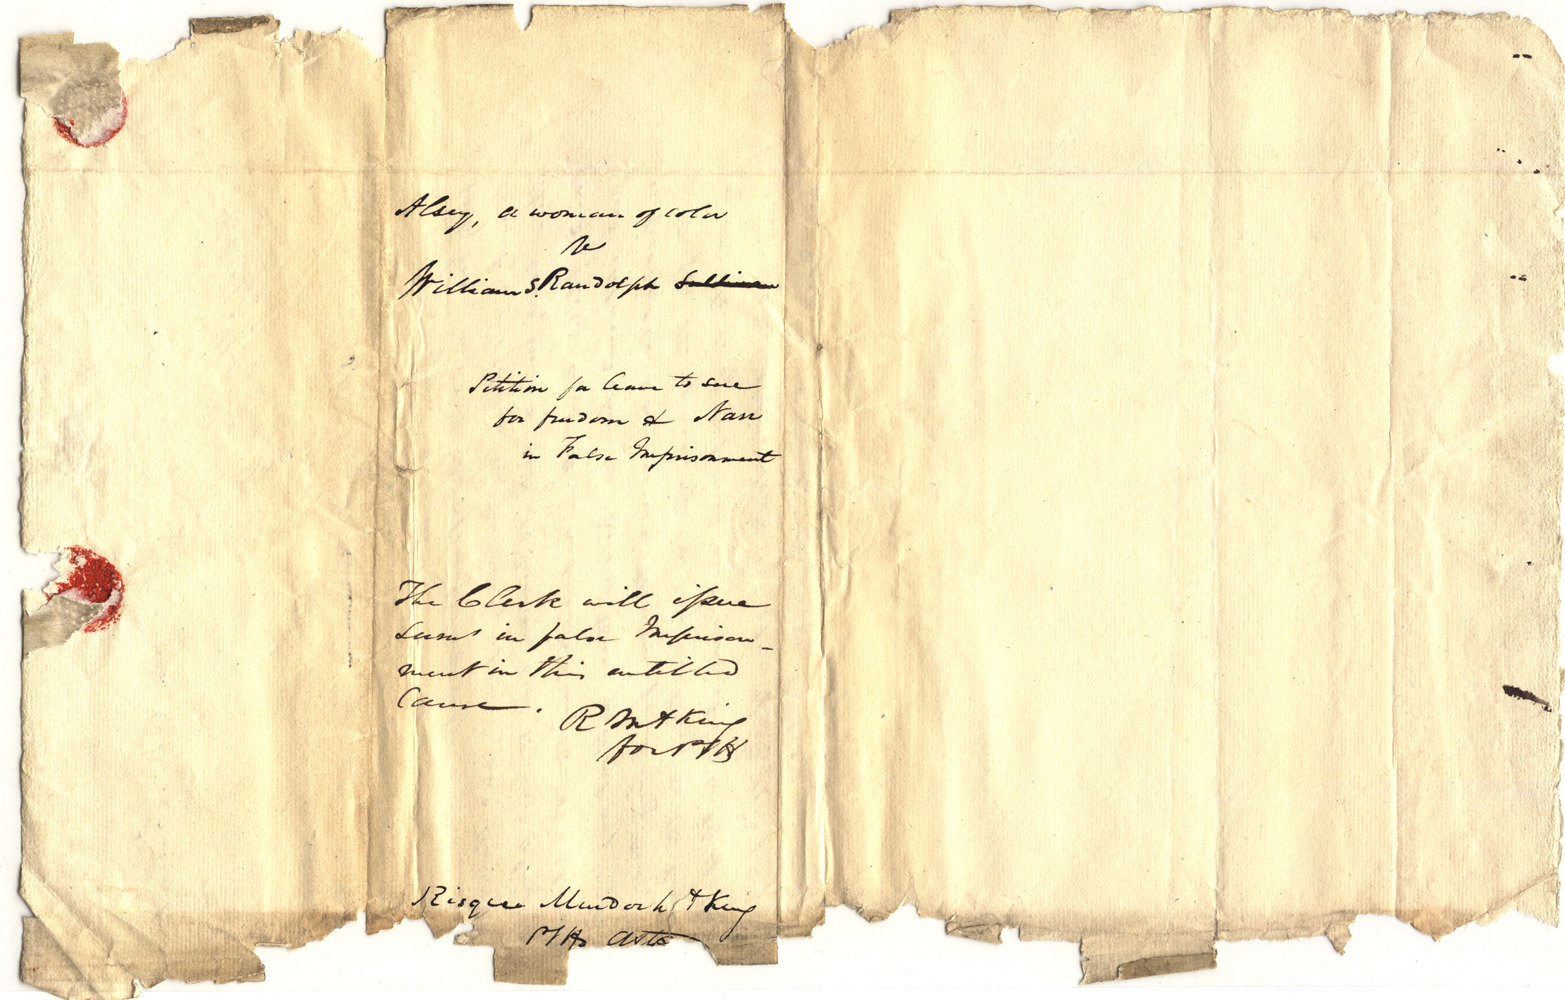 Alsey, a woman of color
vs
William S. Randolph Sullivan
Petition for leave to sue
for freedom & Narr
in False Imprisonment
The Clerk will issue
Sums in false Imprison-
ment in this entitled
Cause.
R M & King
for Plff
Risque Murdoch & King
Plffs Atts